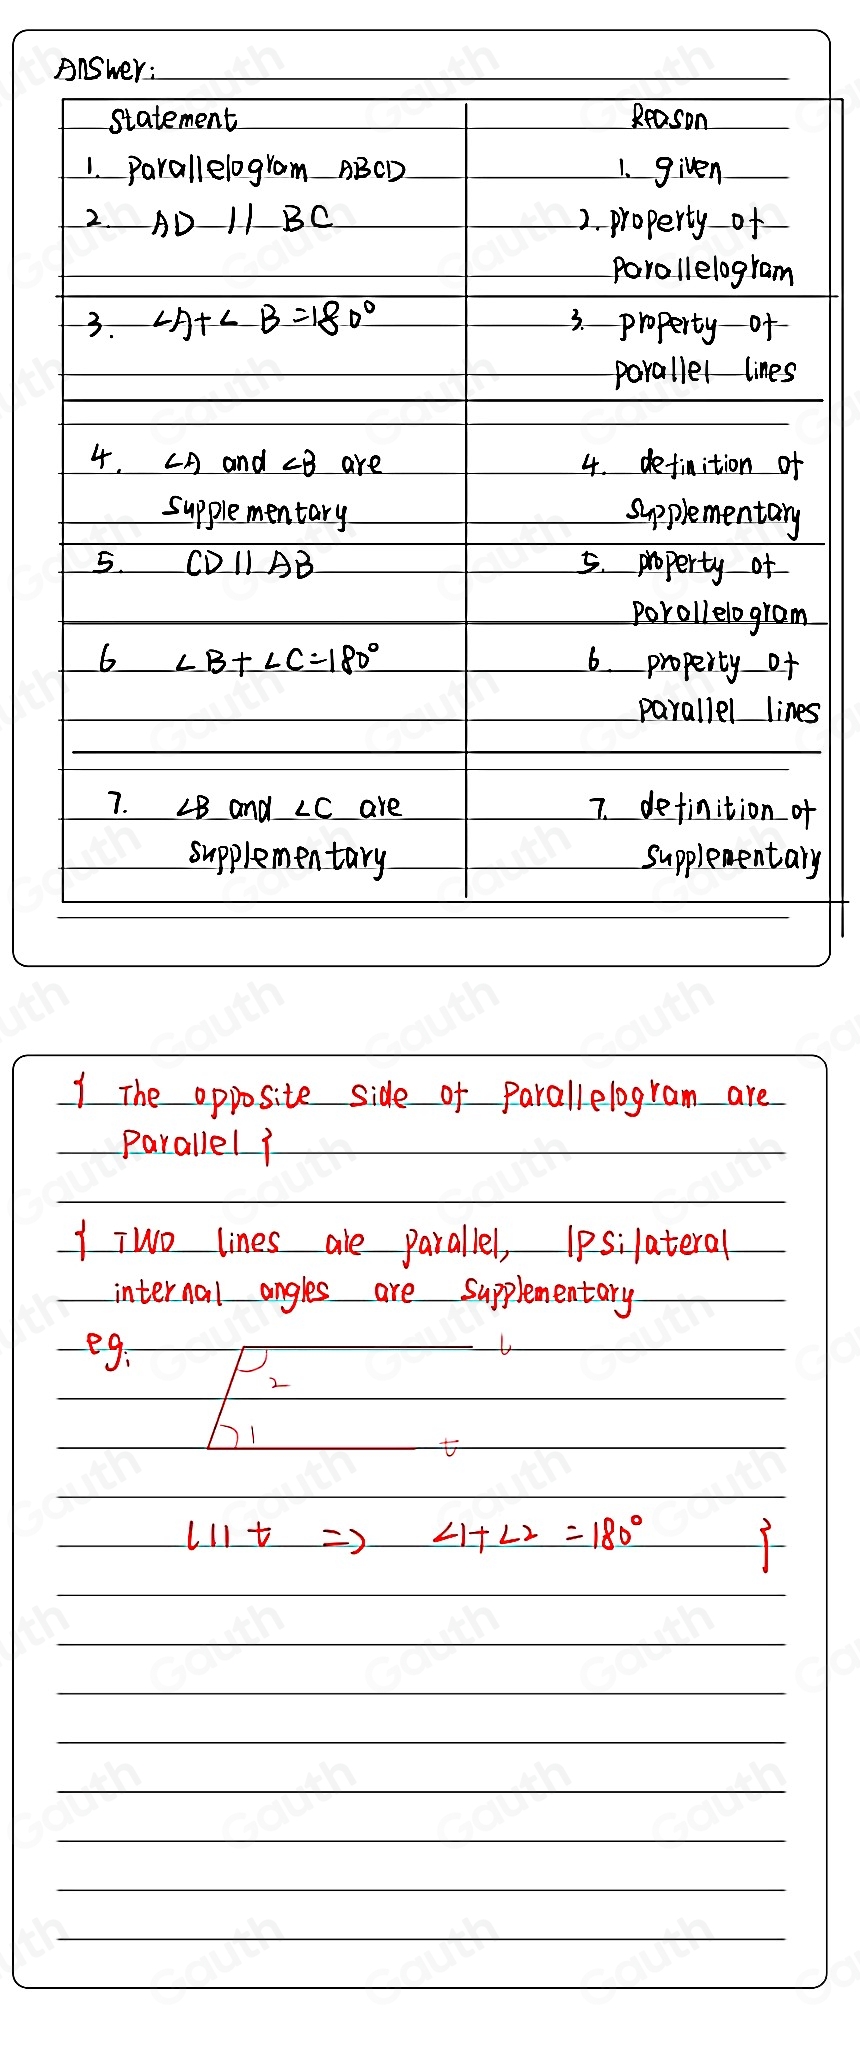 Answer:
Statement Reason
1. Parallelogram ABCD 1. given
2. AD || BC 2. property of
parallelogram
3. ∠A+∠B=180° 3. property of
parallel lines
4. ∠A and ∠B are 4. definition of
supplementary supplementary
5. CD || AB 5. property of
parallelogram
6 ∠B+∠C=180° 6. property of
parallel lines
7. ∠B and ∠C are 7. definition of
supplementary supplementary
{ The opposite side of parallelogram are
parallel }
{ Two lines are parallel, Ipsilateral
internal angles are supplementary
eg:
l
2
1
t
l || t => ∠1+∠2=180° }
Gauth